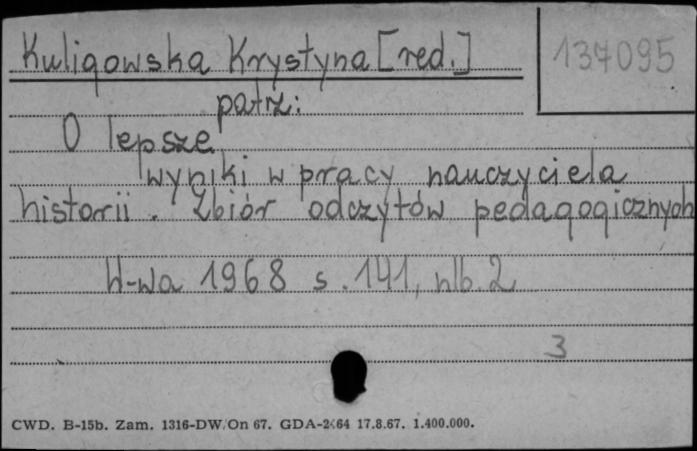 Kuligowska Krystyna [red.]
137095
patrz:
O lepsze
wyniki w pracy nauczyciela
historii. Zbiór odczytów pedagogicznych
W-wa 1968 s. 141, nlb. 2
3
CWD. B-15b. Zam. 1316-DW/On 67. GDA-2<64 17.8.67. 1.400.000.